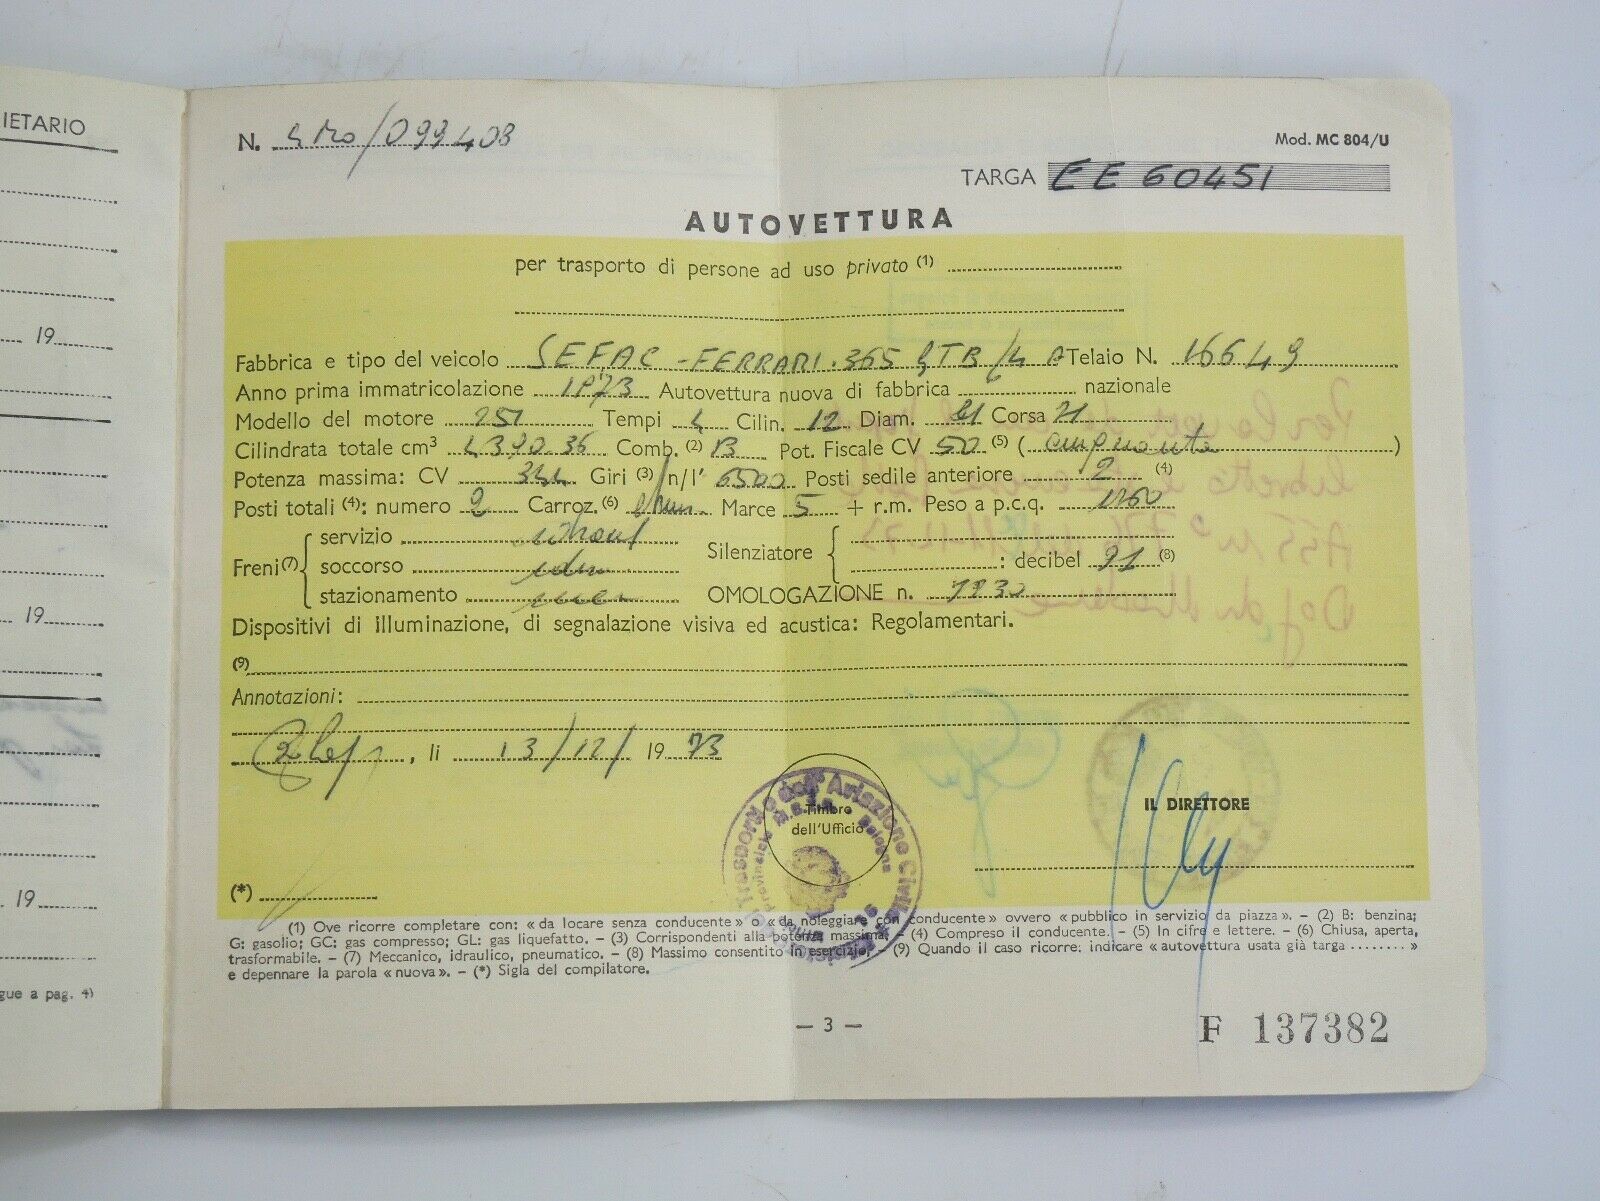 IETARIO
19
19
19
gue a pag. 4)
N. 4 Mo/099408
Mod. MC 804/U
TARGA EE 60451
AUTOVETTURA
per trasporto di persone ad uso privato (1)
Fabbrica e tipo del veicolo SEFAC - FERRARI. 365 GTB/4 A Telaio N. 16649
Anno prima immatricolazione 1973 Autovettura nuova di fabbrica nazionale
Modello del motore 251 Tempi 4 Cilin. 12 Diam. 81 Corsa 71
Cilindrata totale cm³ 4390.35 Comb. (2) B Pot. Fiscale CV 50 (5) ( cinquanta )
Potenza massima: CV 344 Giri (3) n/1' 6500 Posti sedile anteriore 2 (4)
Posti totali (4): numero 2 Carroz. (6) Marce 5 + r.m. Peso a p.c.q. 1260
Freni (7) servizio
soccorso
stazionamento
Silenziatore : decibel 91 (8)
OMOLOGAZIONE n. 7930
Dispositivi di illuminazione, di segnalazione visiva ed acustica: Regolamentari.
(9)
Annotazioni:
, li 13/12/ 19 73
Timbro
dell'Ufficio
IL DIRETTORE
(*)
(1) Ove ricorre completare con: « da locare senza conducente » o « da noleggiare con conducente » ovvero « pubblico in servizio da piazza ». – (2) B: benzina;
G: gasolio; GC: gas compresso; GL: gas liquefatto. – (3) Corrispondenti alla potenza massima. – (4) Compreso il conducente. – (5) In cifre e lettere. – (6) Chiusa, aperta,
trasformabile. – (7) Meccanico, idraulico, pneumatico. – (8) Massimo consentito in esercizio. (9) Quando il caso ricorre: indicare « autovettura usata già targa ........ »
e depennare la parola « nuova ». – (*) Sigla del compilatore.
— 3 —
F 137382